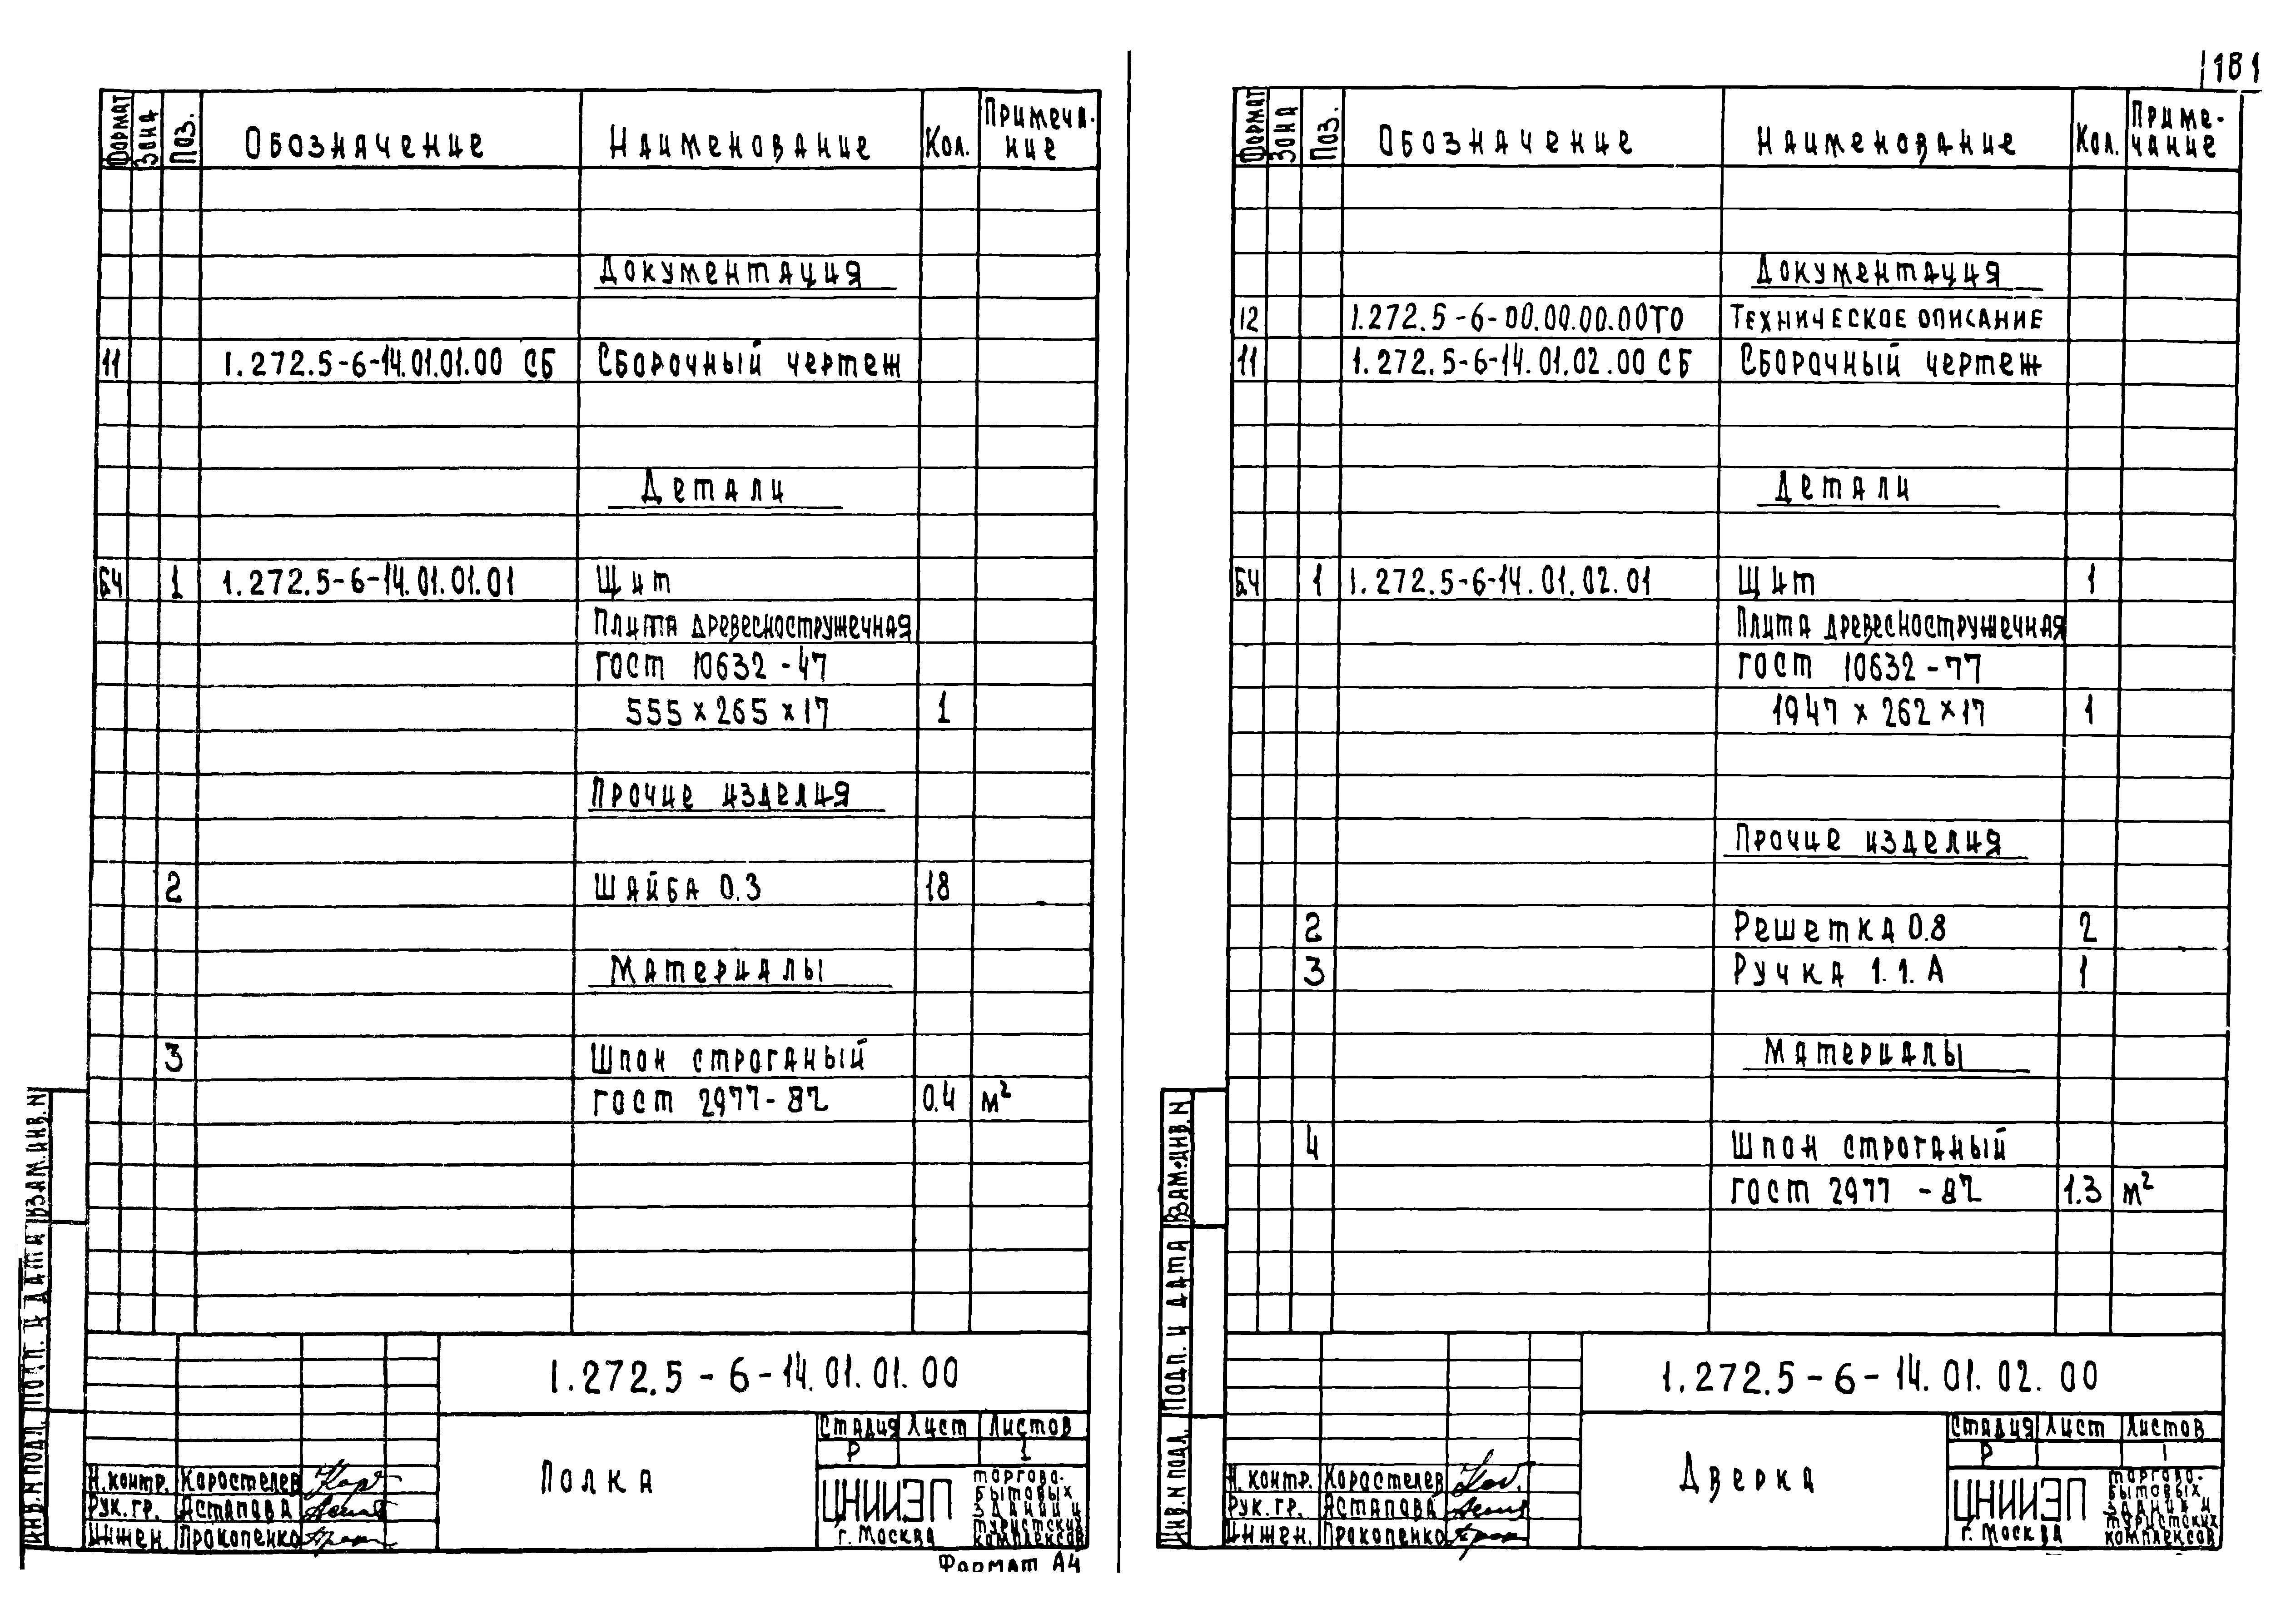 181
Формат Зона Поз. Обозначение Наименование Кол. Примеча-
ние
Документация
11 1.272.5-6-14.01.01.00 СБ Сборочный чертеж
Детали
БЧ 1 1.272.5-6-14.01.01.01 Щит
Плита древесностружечная
ГОСТ 10632-47
555 х 265 х 17 1
Прочие изделия
2 Шайба 0.3 18
Материалы
3 Шпон строганый
ГОСТ 2977-82 0.4 м²
Инв. N подл. Подп. и дата Взам. инв. N
1.272.5-6-14.01.01.00
Стадия Лист Листов
Р 1
Полка
Н. контр. Коростелев
Рук. гр. Астапова
Инжен. Прокопенко
ЦНИИЭП
г. Москва
торгово-
бытовых
зданий и
туристских
комплексов
Формат А4
Формат Зона Поз. Обозначение Наименование Кол. Приме-
чание
Документация
12 1.272.5-6-00.00.00.00ТО Техническое описание
11 1.272.5-6-14.01.02.00 СБ Сборочный чертеж
Детали
БЧ 1 1.272.5-6-14.01.02.01 Щит 1
Плита древесностружечная
ГОСТ 10632-77
1947 х 262 х 17 1
Прочие изделия
2 Решетка 0.8 2
3 Ручка 1.1.А 1
Материалы
4 Шпон строганый
ГОСТ 2977 - 82 1.3 м²
Инв. N подл. Подп. и дата Взам. инв. N
1.272.5-6-14.01.02.00
Стадия Лист Листов
Р 1
Дверка
Н. контр. Коростелев
Рук. гр. Астапова
Инжен. Прокопенко
ЦНИИЭП
г. Москва
торгово-
бытовых
зданий и
туристских
комплексов